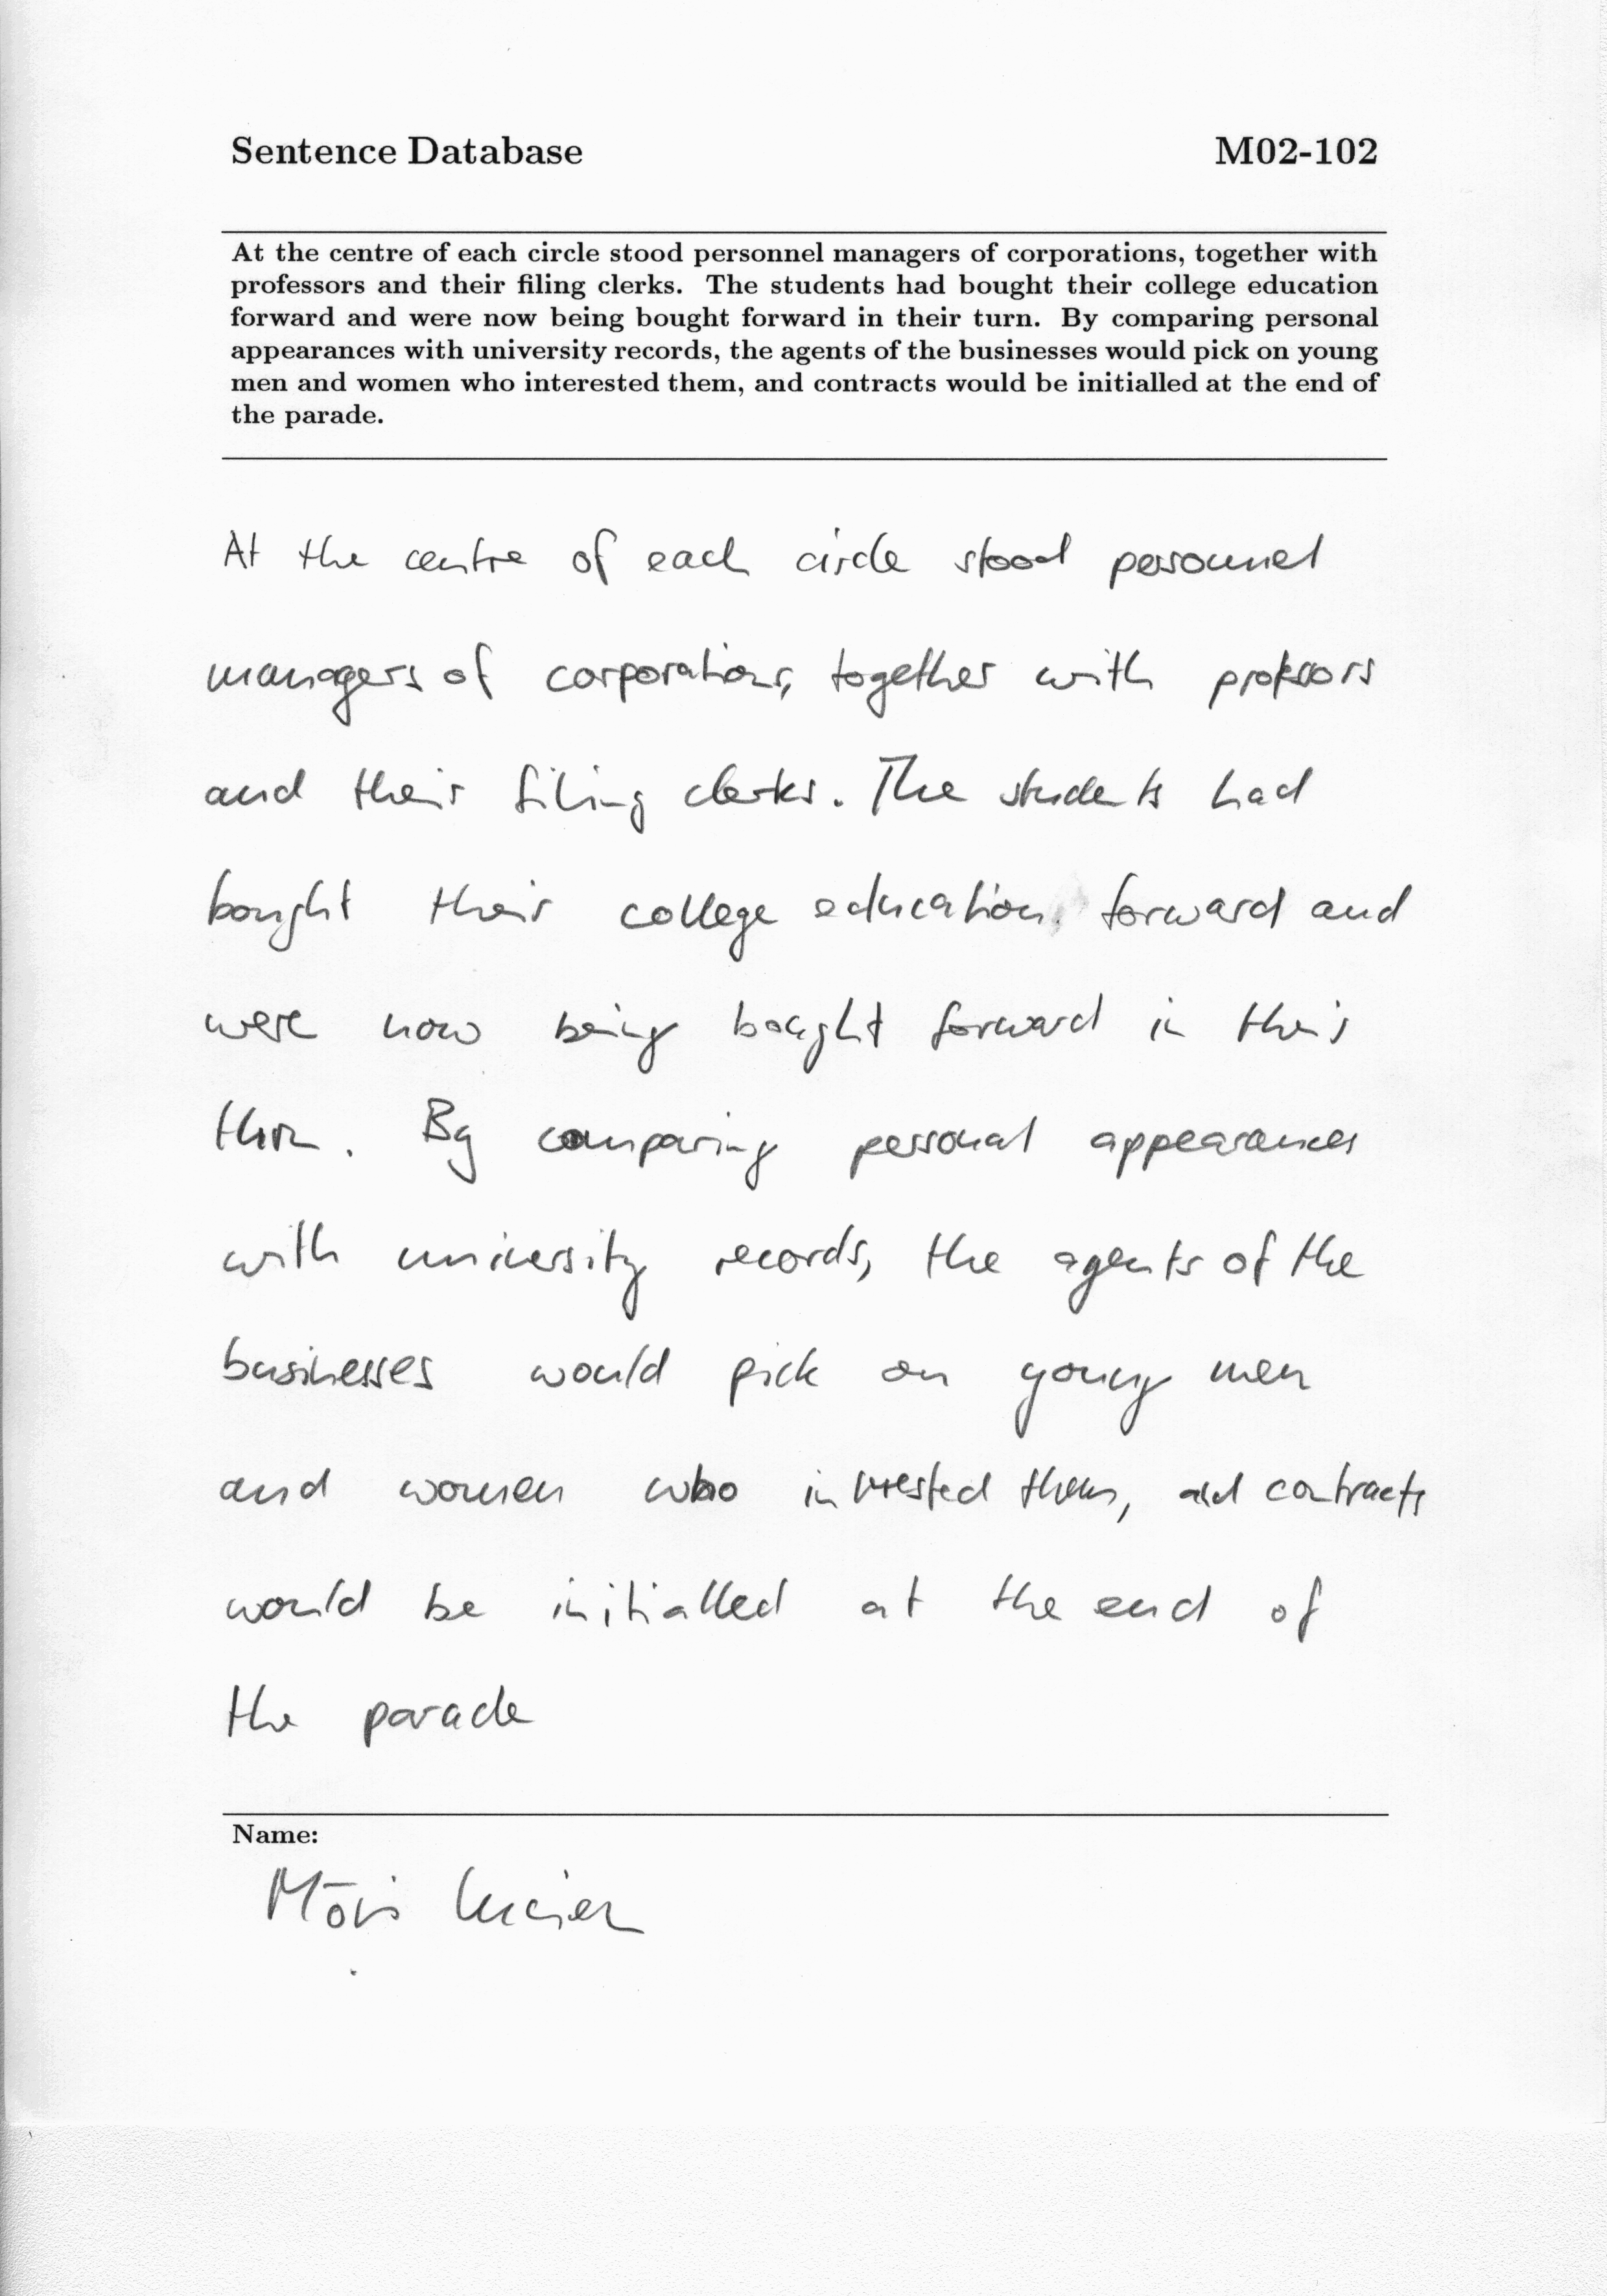 Sentence Database M02-102
At the centre of each circle stood personnel managers of corporations, together with
professors and their filing clerks. The students had bought their college education
forward and were now being bought forward in their turn. By comparing personal
appearances with university records, the agents of the businesses would pick on young
men and women who interested them, and contracts would be initialled at the end of
the parade.
At the centre of each circle stood personnel
managers of corporations, together with professors
and their filing clerks. The students had
bought their college education forward and
were now being bought forward in their
thurn. By comparing personal appearances
with university records, the agents of the
businesses would pick on young men
and women who interested them, and contracts
would be initialled at the end of
the parade
Name: